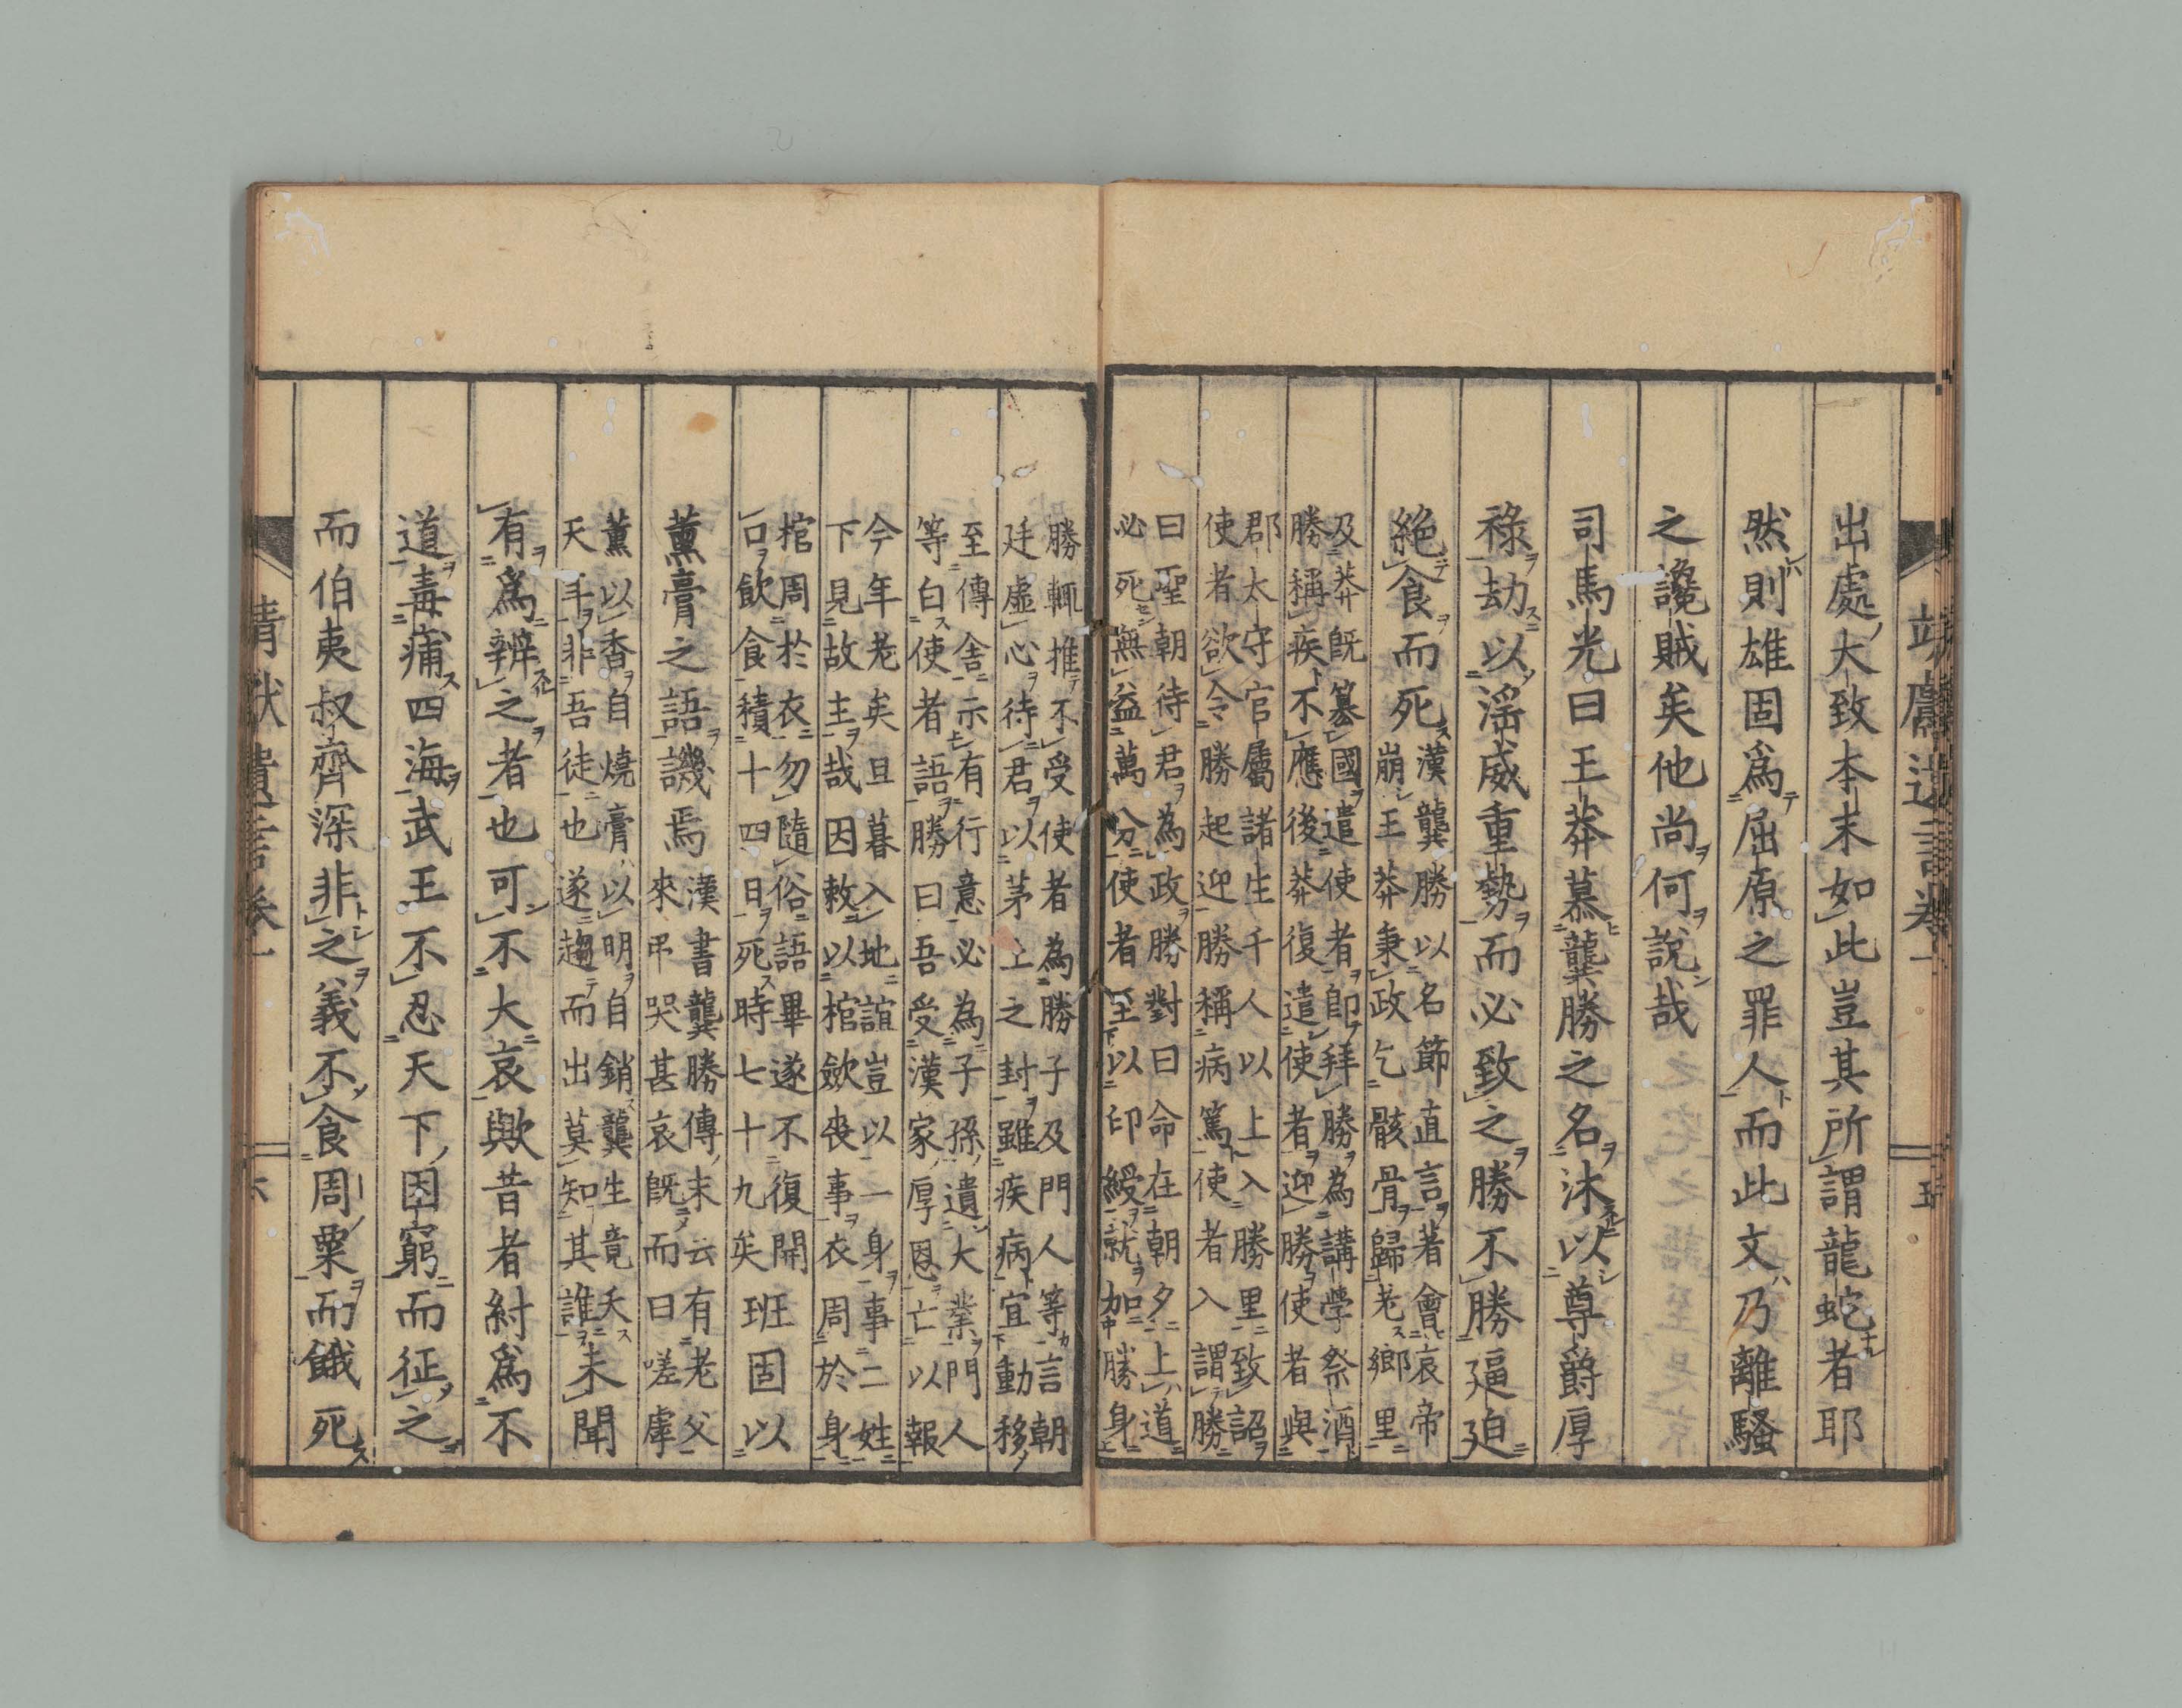 靖獻遺言卷一 五
出處大致本末如此豈其所謂龍蛇者耶
然則雄固爲屈原之罪人而此文乃離騷
之讒賊矣他尚何說哉
司馬光曰王莽慕龔勝之名沐以尊爵厚
祿劫以淫威重勢而必致之勝不勝逼迫
絕食而死
漢龔勝以名節直言著會哀帝
崩王莽秉政乞骸骨歸老鄉里
及莽既篡國遣使者即拜勝為講學祭酒
勝稱疾不應後莽復遣使者迎勝使者與
郡太守官屬諸生千人以上入勝里致詔
使者欲令勝起迎勝稱病篤使者入謂勝
曰聖朝待君為政勝對曰命在朝夕上道
必死無益萬分使者至以印綬就加勝身
勝輒推不受使者為勝子及門人等言朝
廷虛心待君以茅土之封雖疾病宜動移
至傳舍示有行意必為子孫遺大業門人
等白使者語勝曰吾受漢家厚恩亡以報
今年老矣旦暮入地誼豈以一身事二姓
下見故主哉因敕以棺斂喪事衣周於身
棺周於衣勿隨俗語畢遂不復開
口飲食積十四日死時七十九矣
班固以
薰膏之語譏焉
漢書龔勝傳末云有老父
來弔哭甚哀既而曰嗟虖
薰以香自燒膏以明自銷龔生竟夭
天年非吾徒也遂趨而出莫知其誰
未聞
有爲辨之者也可不大哀歟昔者紂爲不
道毒痡四海武王不忍天下困窮而征之
而伯夷叔齊深非之義不食周粟而餓死
靖獻遺言卷一 六